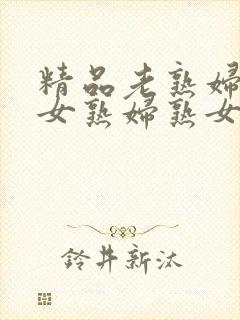 精品老熟婦
女熟婦熟女
鈴井新汰